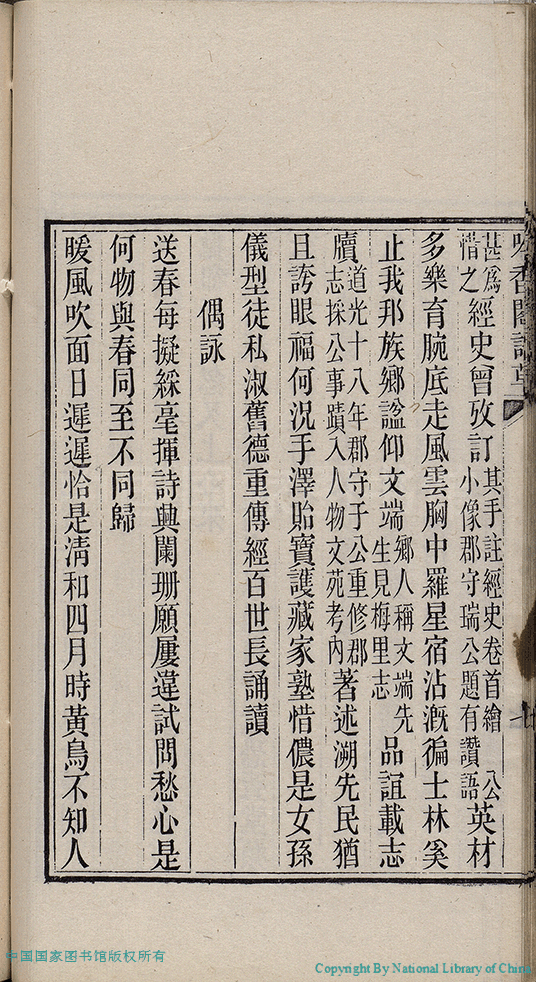 香閣詩草
甚爲惜之經史曾攷訂其手註經史卷首繪 公小像郡守瑞公題有讚語英材
多樂育腕底走風雲胸中羅星宿沾漑徧士林奚
止我邦族鄉謚仰文端鄉人稱文端先生見梅里志品誼載志
牘道光十八年郡守于公重修郡志採公事蹟入人物文苑考內著述溯先民猶
且誇眼福何況手澤貽寶護藏家塾惜儂是女孫
儀型徒私淑舊德重傳經百世長誦讀
偶詠
送春每擬綵毫揮詩興闌珊願屢違試問愁心是
何物與春同至不同歸
暖風吹面日遲遲恰是清和四月時黃鳥不知人
中国国家图书馆版权所有
Copyright By National Library of China